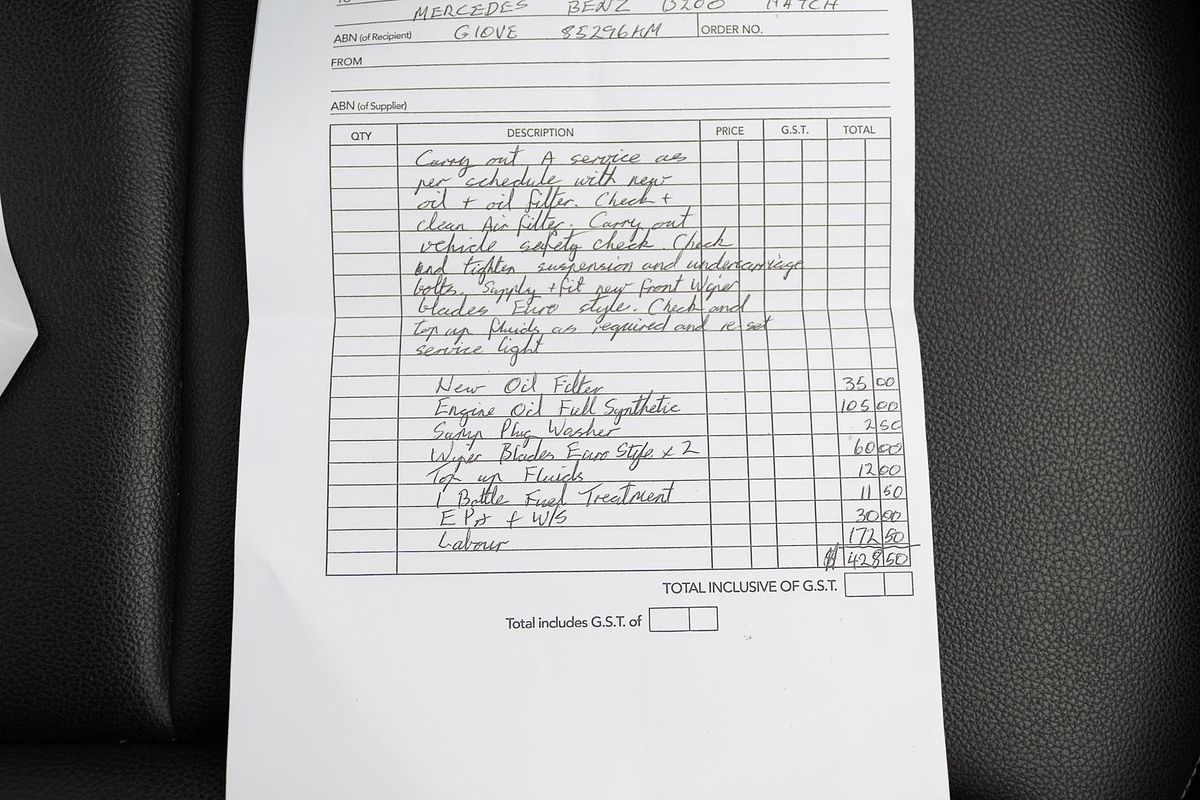 MERCEDES BENZ B200 HATCH
ABN (of Recipient) GIOVE 85296KM ORDER NO.
FROM
ABN (of Supplier)
QTY DESCRIPTION PRICE G.S.T. TOTAL
Carry out A service as
per schedule with new
oil + oil filter. Check +
clean Air filter. Carry out
vehicle safety check. Check
and tighten suspension and undercarriage
bolts. Supply + fit new front Wiper
blades Euro style. Check and
Top up fluids as required and re-set
service light
New Oil Filter 35 00
Engine Oil Full Synthetic 105 00
Sump Plug Washer 2 50
Wiper Blades Euro Style x 2 60 00
Top up Fluids 12 00
1 Bottle Fuel Treatment 11 50
E P.A + W/S 30 00
Labour 172 50
$ 428 50
TOTAL INCLUSIVE OF G.S.T.
Total includes G.S.T. of